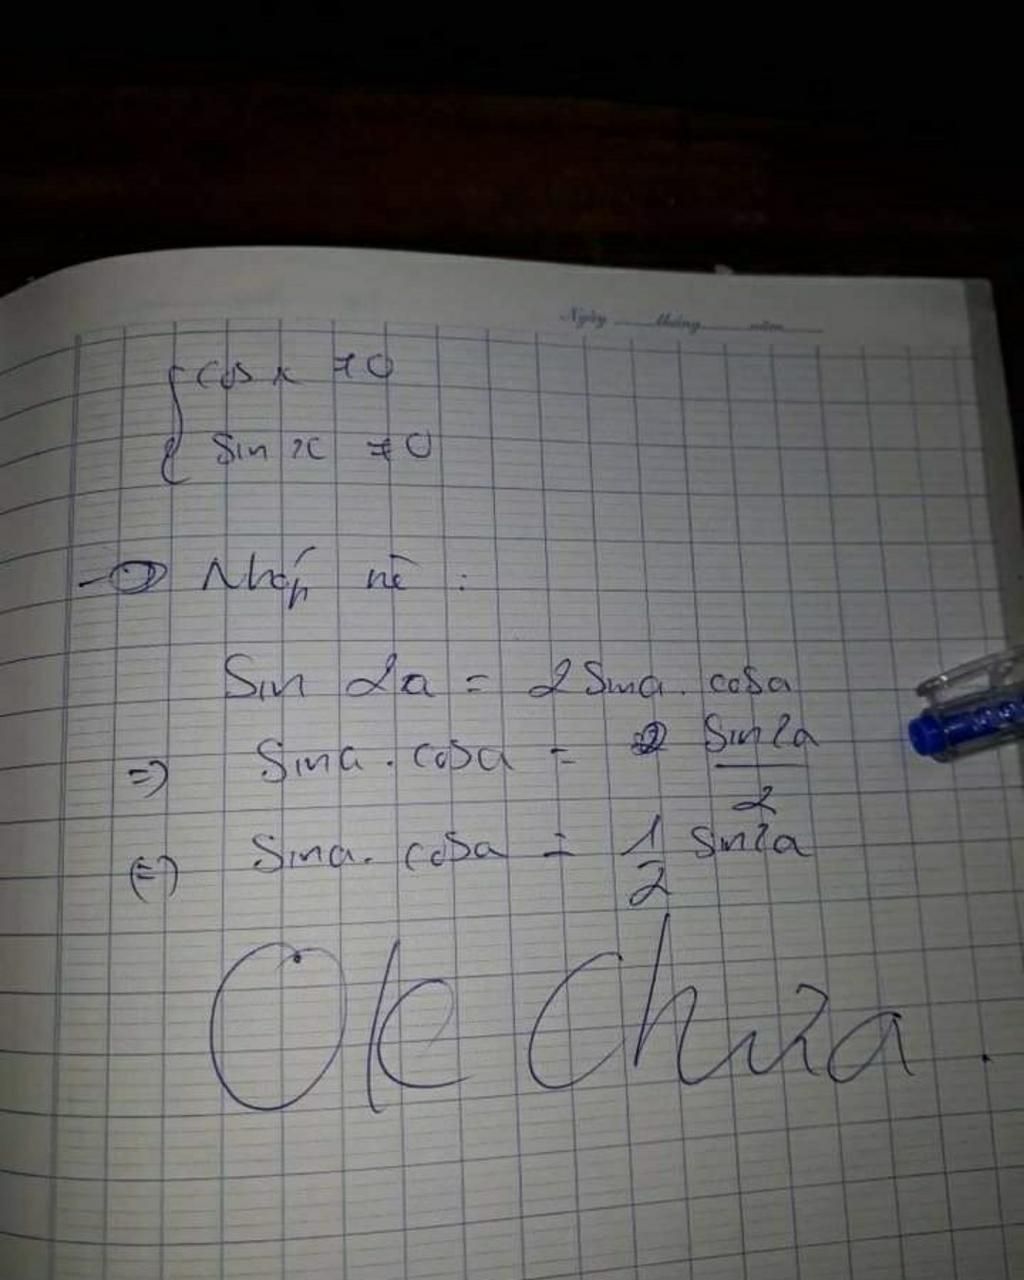 Ngày tháng năm
{ cos x ≠ 0
sin x ≠ 0
→ Nháp nè :
Sin 2a = 2 Sina . cosa
=> Sina . cosa = Sin2a / 2
<=> Sina . cosa = 1/2 Sin2a
Ok Chưa .